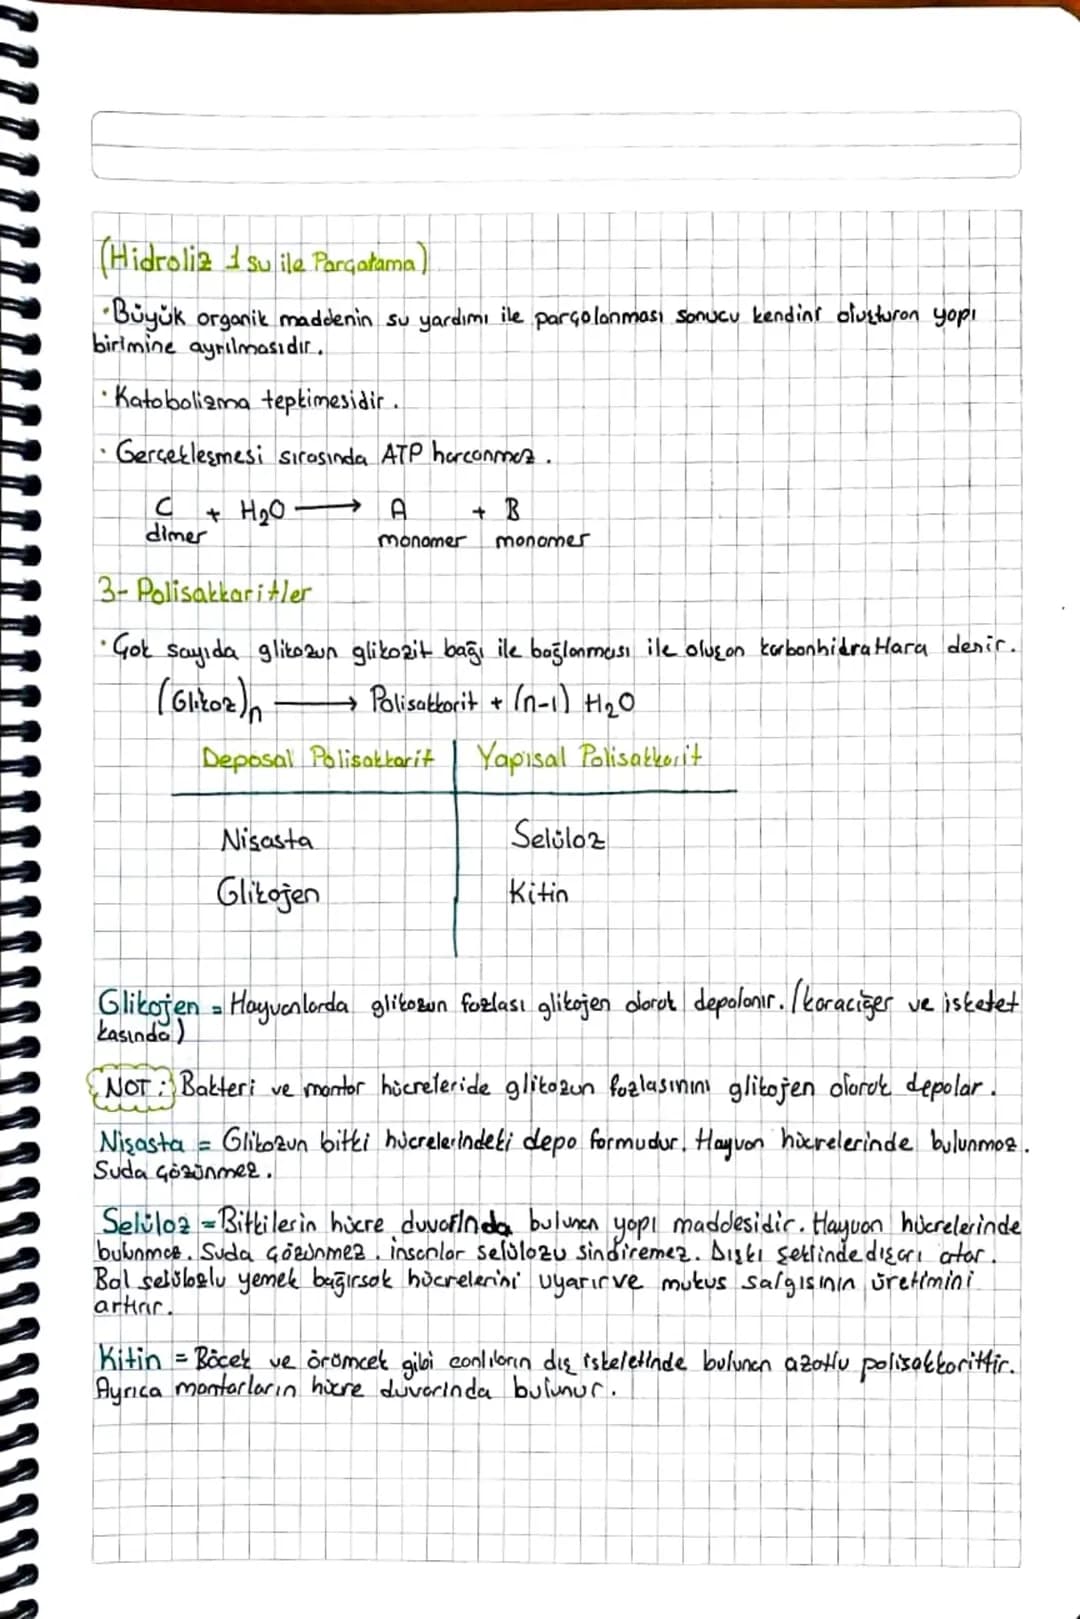 (Hidroliz 1 su ile Parçatama)
·Büyük organik maddenin su yardımı ile parçalanması sonucu kendini oluşturan yapı
birimine ayrılmasıdır.
·Katabolizma tepkimesidir.
·Gerçekleşmesi sırasında ATP harcanmaz.
C + H₂O → A + B
dimer monomer monomer
3- Polisakkaritler
·Çok sayıda glikozun glikozit bağı ile bağlanması ile oluşan karbonhidratlara denir.
(Glikoz)n → Polisakkarit + (n-1) H₂O
Deposal Polisakkarit Yapısal Polisakkarit
Nişasta Selüloz
Glikojen Kitin
Glikojen = Hayvanlarda glikozun fazlası glikojen olarak depolanır. (karaciğer ve iskelet
kasında)
NOT: Bakteri ve mantar hücreleride glikozun fazlasınını glikojen olarak depolar.
Nişasta = Glikozun bitki hücrelerindeki depo formudur. Hayvan hücrelerinde bulunmaz.
Suda çözünmez.
Selüloz = Bitkilerin hücre duvarında bulunan yapı maddesidir. Hayvan hücrelerinde
bulunmaz. Suda çözünmez. insanlar selülozu sindiremez. Dışkı şeklinde dışarı atar.
Bol selülozlu yemek bağırsak hücrelerini uyarır ve mukus salgısının üretimini
artırır.
Kitin = Böcek ve örümcek gibi canlıların dış iskeletinde bulunan azotlu polisakkarittir.
Ayrıca mantarların hücre duvarında bulunur.